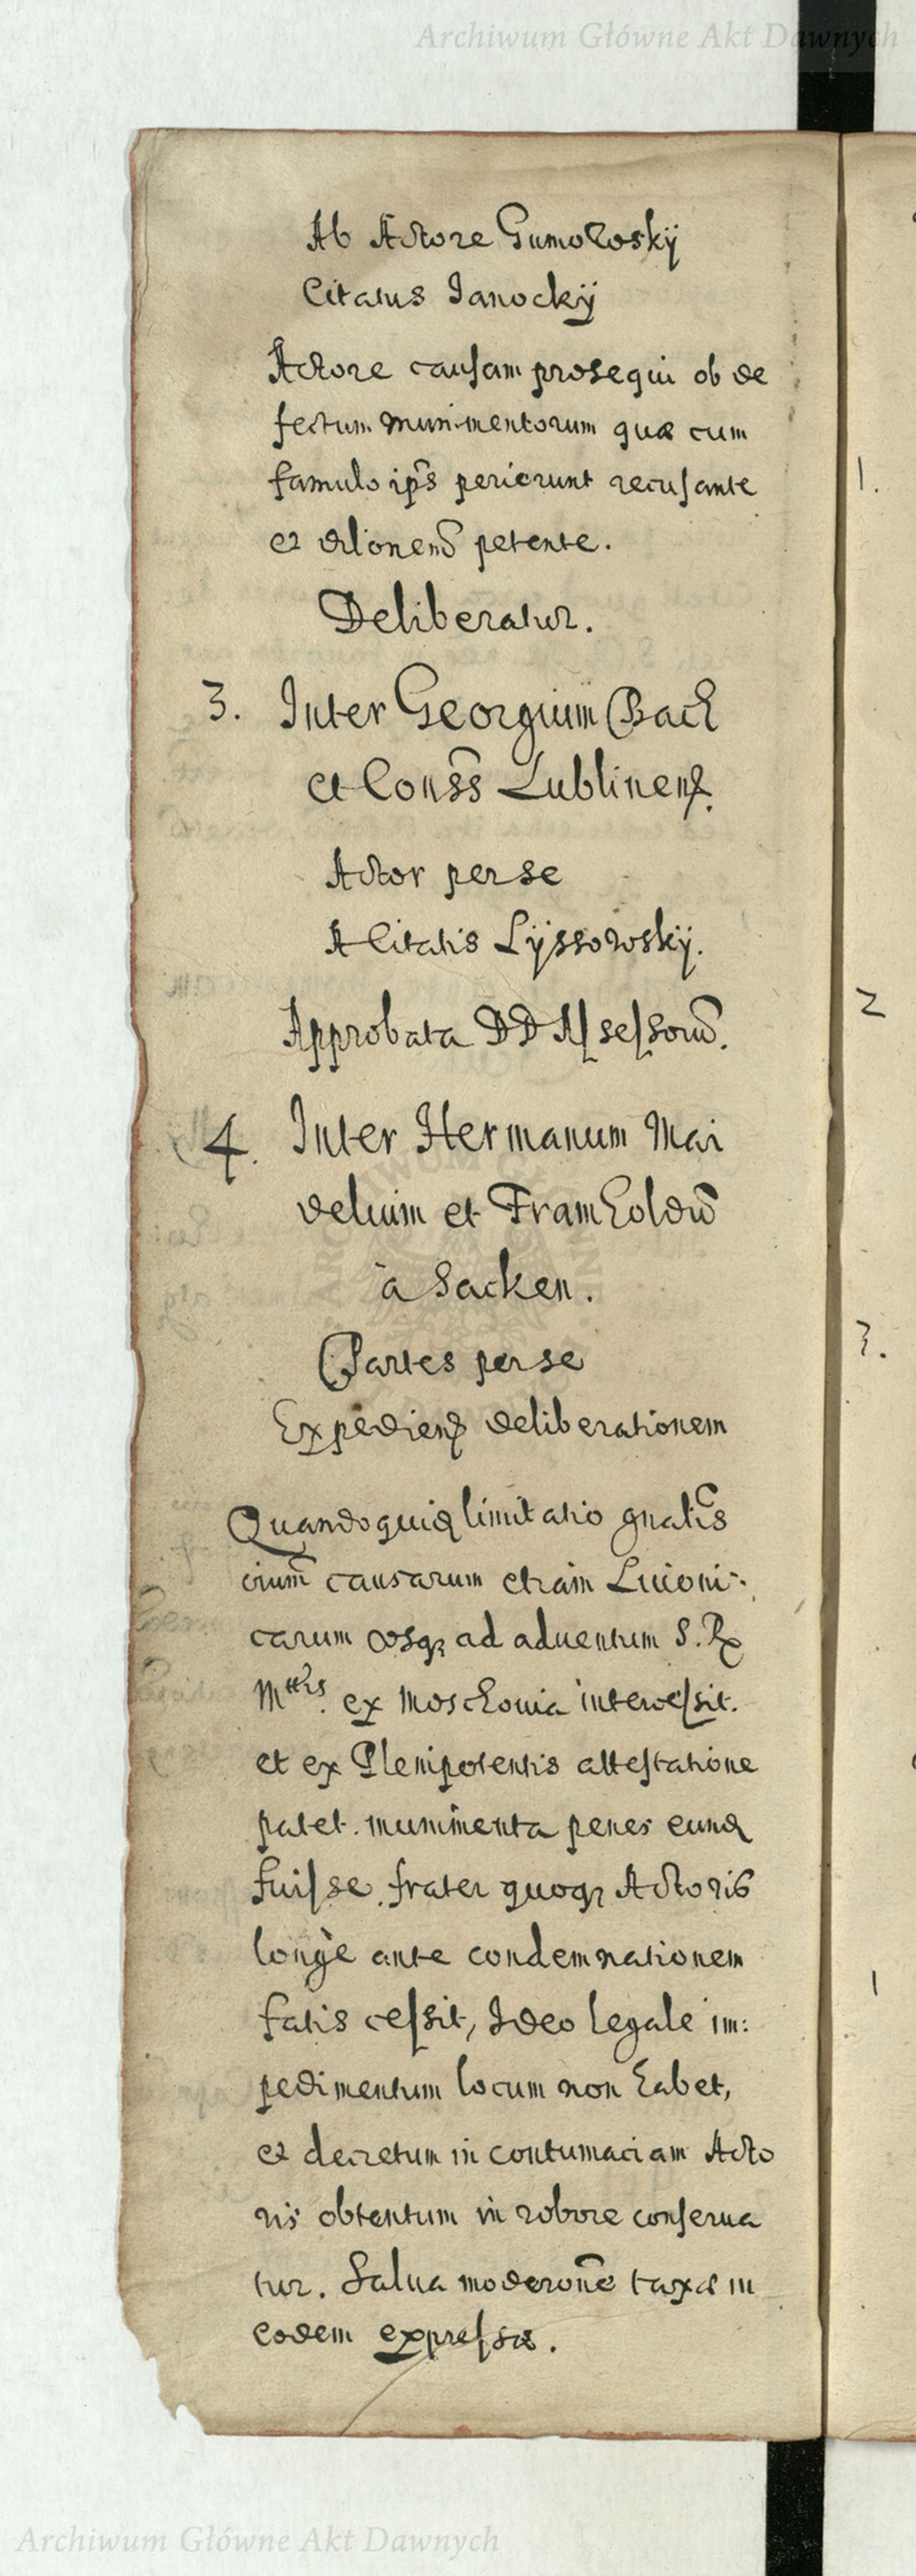 Archiwum Główne Akt Dawnych
Ab Actore Gumowskÿ
Citatus Janockÿ
Actore causam prosequi ob de
fectum munimentorum quæ cum
famulo ips perierunt recusante
et dilonem petente.
Deliberatur.
3. Inter Georgium Bach
et Conss Lublinens.
Actor perse
A Citatis Lÿssowskÿ.
Approbata DD Assessorũ.
4. Inter Hermanum Mai
delium et Framholdũ
à Sacken.
Partes perse
Expediens deliberationem
Quandoquid limitatio gnalis
oium causarum etiam Liuoni-
carum usq ad aduentum S. R
Mttis. ex Moschouia intercessit.
et ex Plenipotentis attestatione
patet munimenta penes eund
fuisse, frater quoq Actoris
longè ante condemnationem
fatis cessit, Ideo legale im:
pedimentum locum non habet,
et decretum in contumaciam Acto
ris obtentum in robore conserua
tur. Salua moderone taxæ in
eodem expressæ.
1.
2
3.
1
Archiwum Główne Akt Dawnych